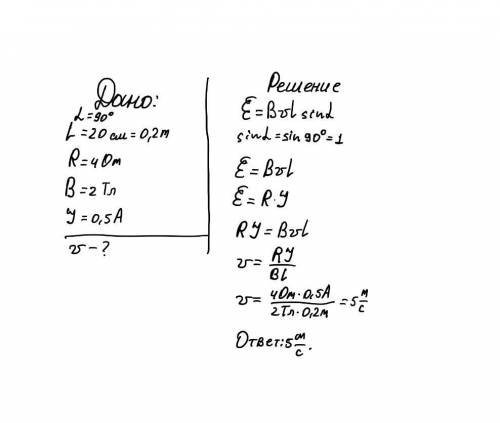 Дано:
α=90°
L=20 см=0,2м
R=4Ом
B=2Тл
У=0,5А
v-?
Решение
Ɛ=Bvl sinα
sinα=sin90°=1
Ɛ=Bvl
Ɛ=R·У
RУ=Bvl
v=RУ/Bl
v=4Ом·0,5А/2Тл·0,2м=5м/с
Ответ:5м/с.